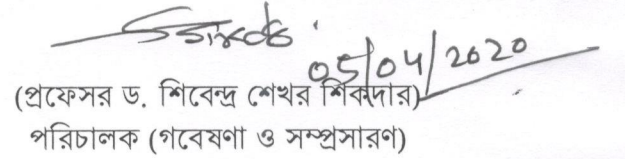 05/04/2020
(প্রফেসর ড. শিবেন্দ্র শেখর শিকদার)
পরিচালক (গবেষণা ও সম্প্রসারণ)